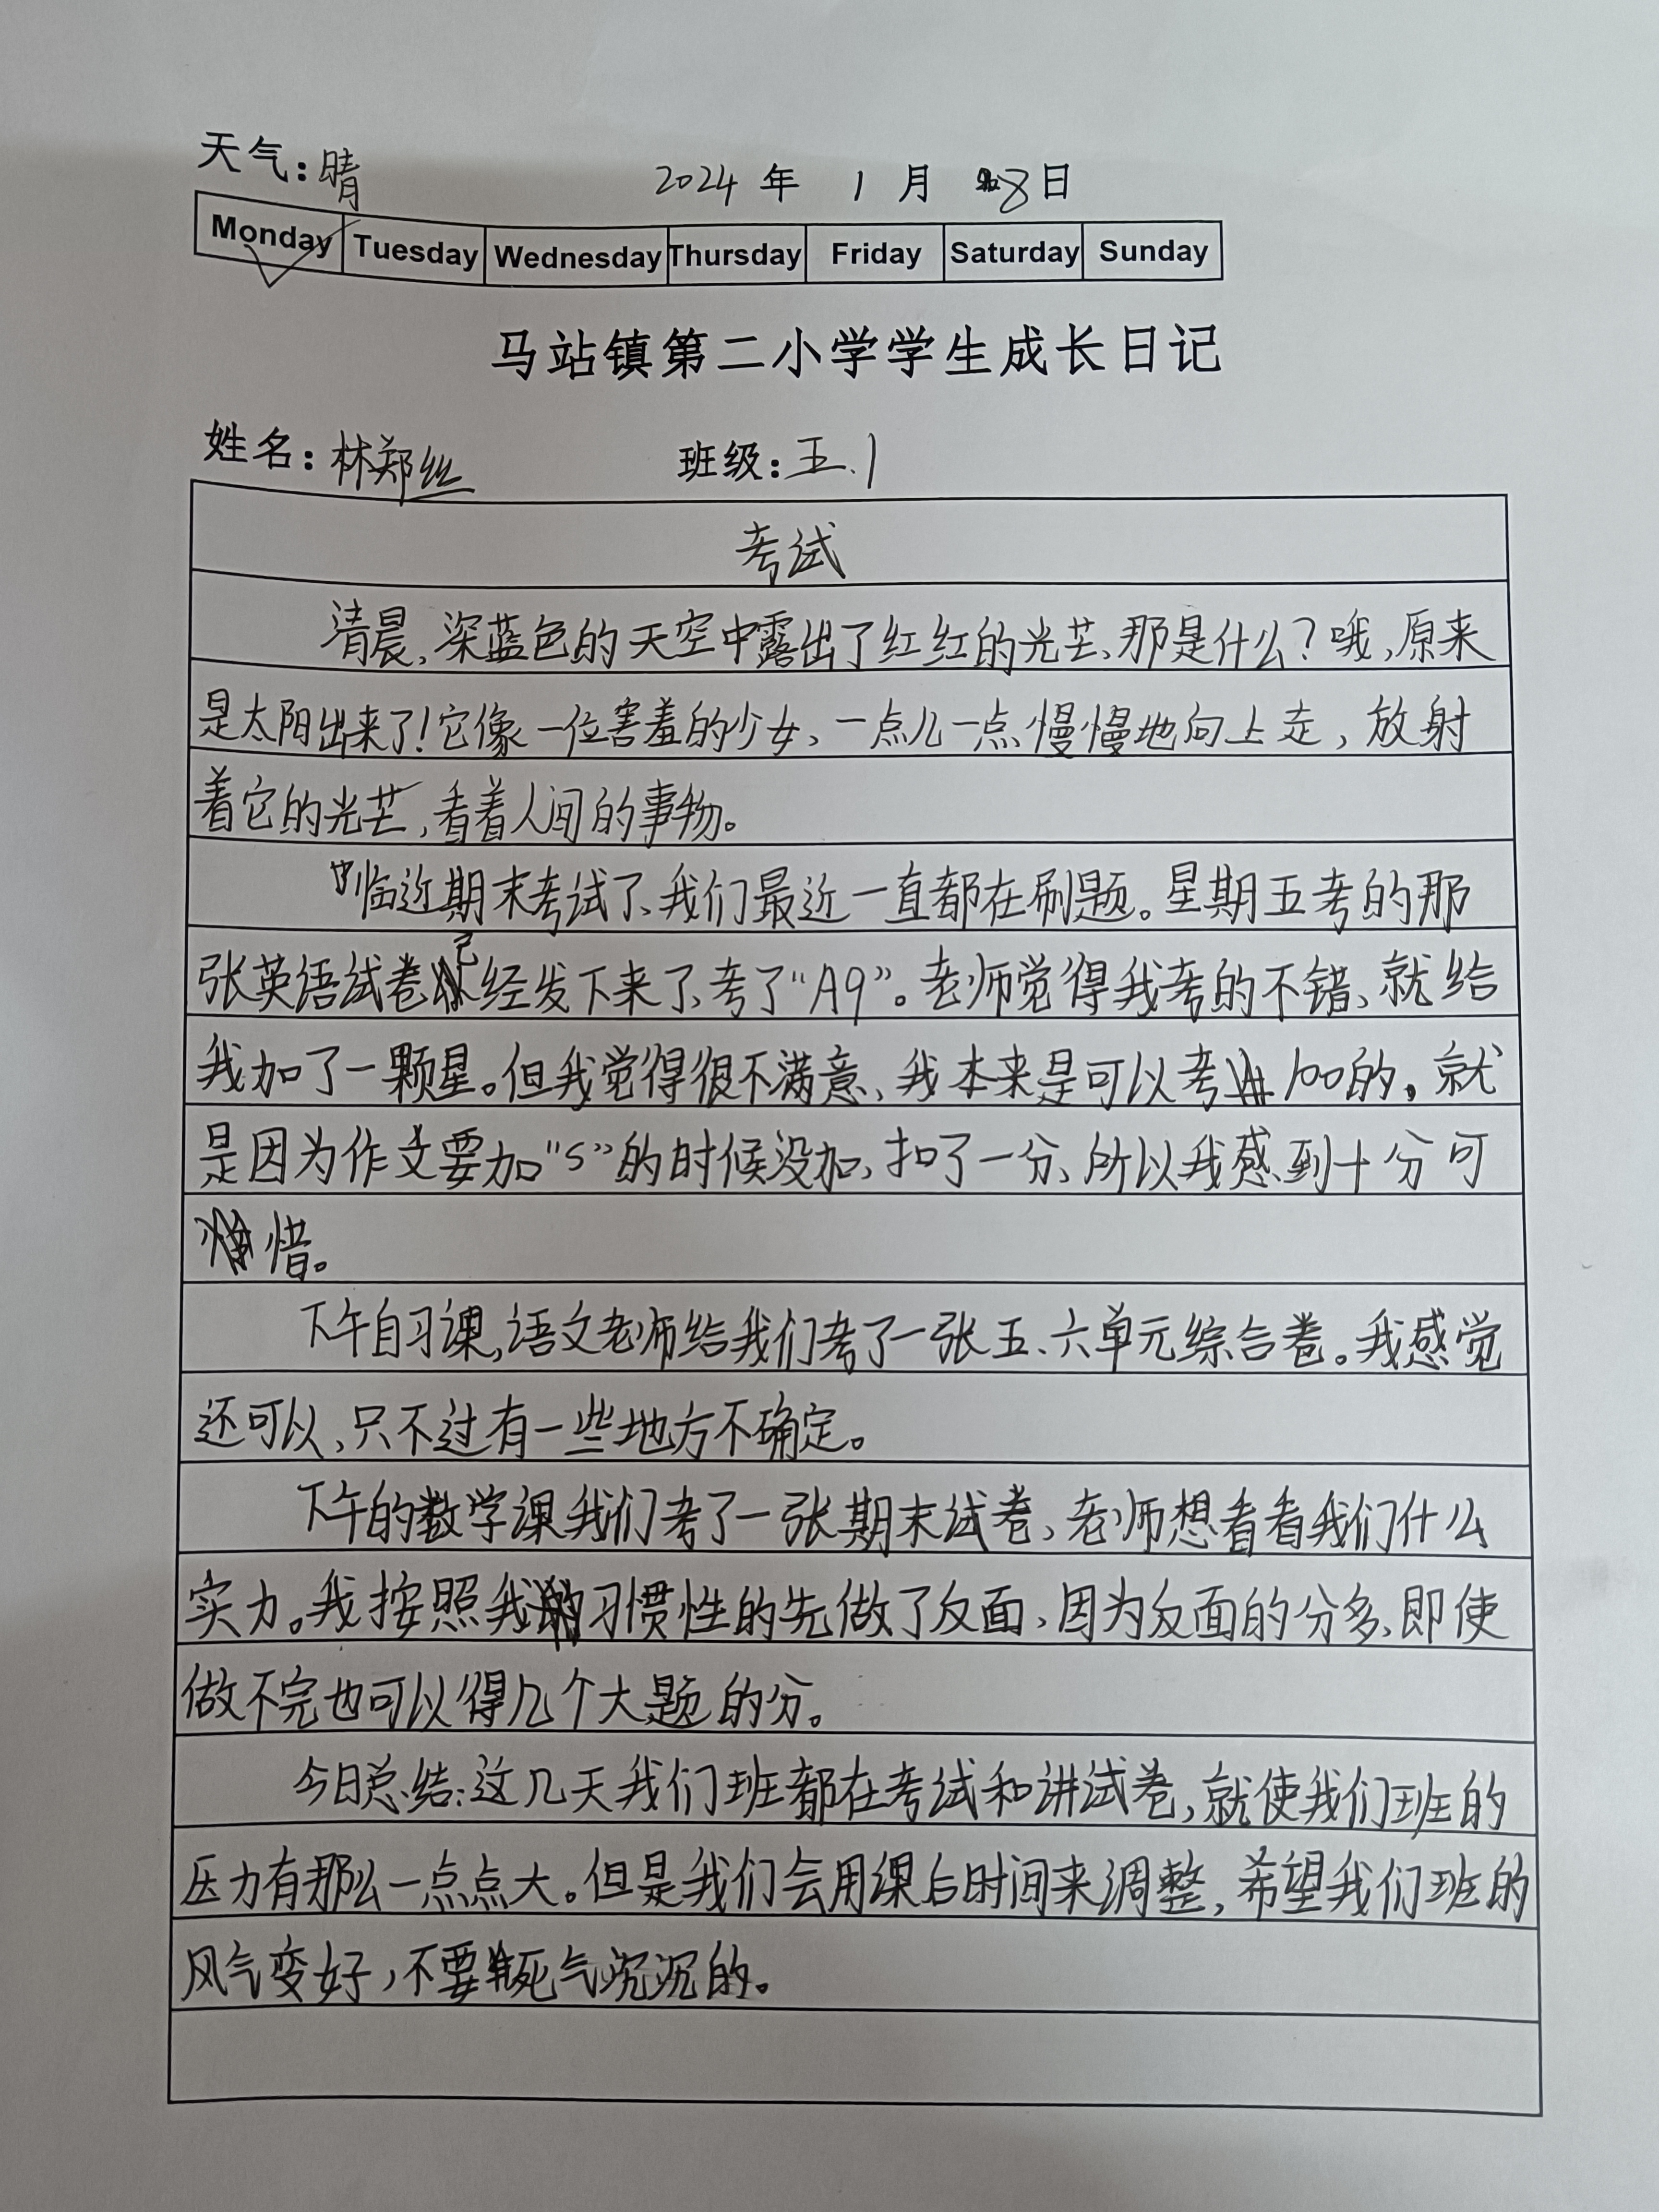 天气：晴 2024 年 1 月 8日
Monday Tuesday Wednesday Thursday Friday Saturday Sunday
马站镇第二小学学生成长日记
姓名：林郑丝 班级：五.1
考试
清晨，深蓝色的天空中露出了红红的光芒、那是什么？哦，原来
是太阳出来了！它像一位害羞的少女、一点儿一点、慢慢地向上走，放射
着它的光芒，看着人间的事物。
临近期末考试了、我们最近一直都在刷题。星期五考的那
张英语试卷已经发下来了、考了“A9”。老师觉得我考的不错、就给
我加了一颗星。但我觉得很不满意、我本来是可以考100的。就
是因为作文要加“s”的时候没加、扣了一分、所以我感到十分可
惜。
下午自习课，语文老师给我们考了一张五、六单元综合卷。我感觉
还可以，只不过有一些地方不确定。
下午的数学课我们考了一张期末试卷、老师想看看我们什么
实力。我按照我的习惯性的先做了反面、因为反面的分多、即使
做不完也可以得几个大题的分。
今日总结：这几天我们班都在考试和讲试卷，就使我们班的
压力有那么一点点大。但是我们会用课后时间来调整，希望我们班的
风气变好，不要死气沉沉的。